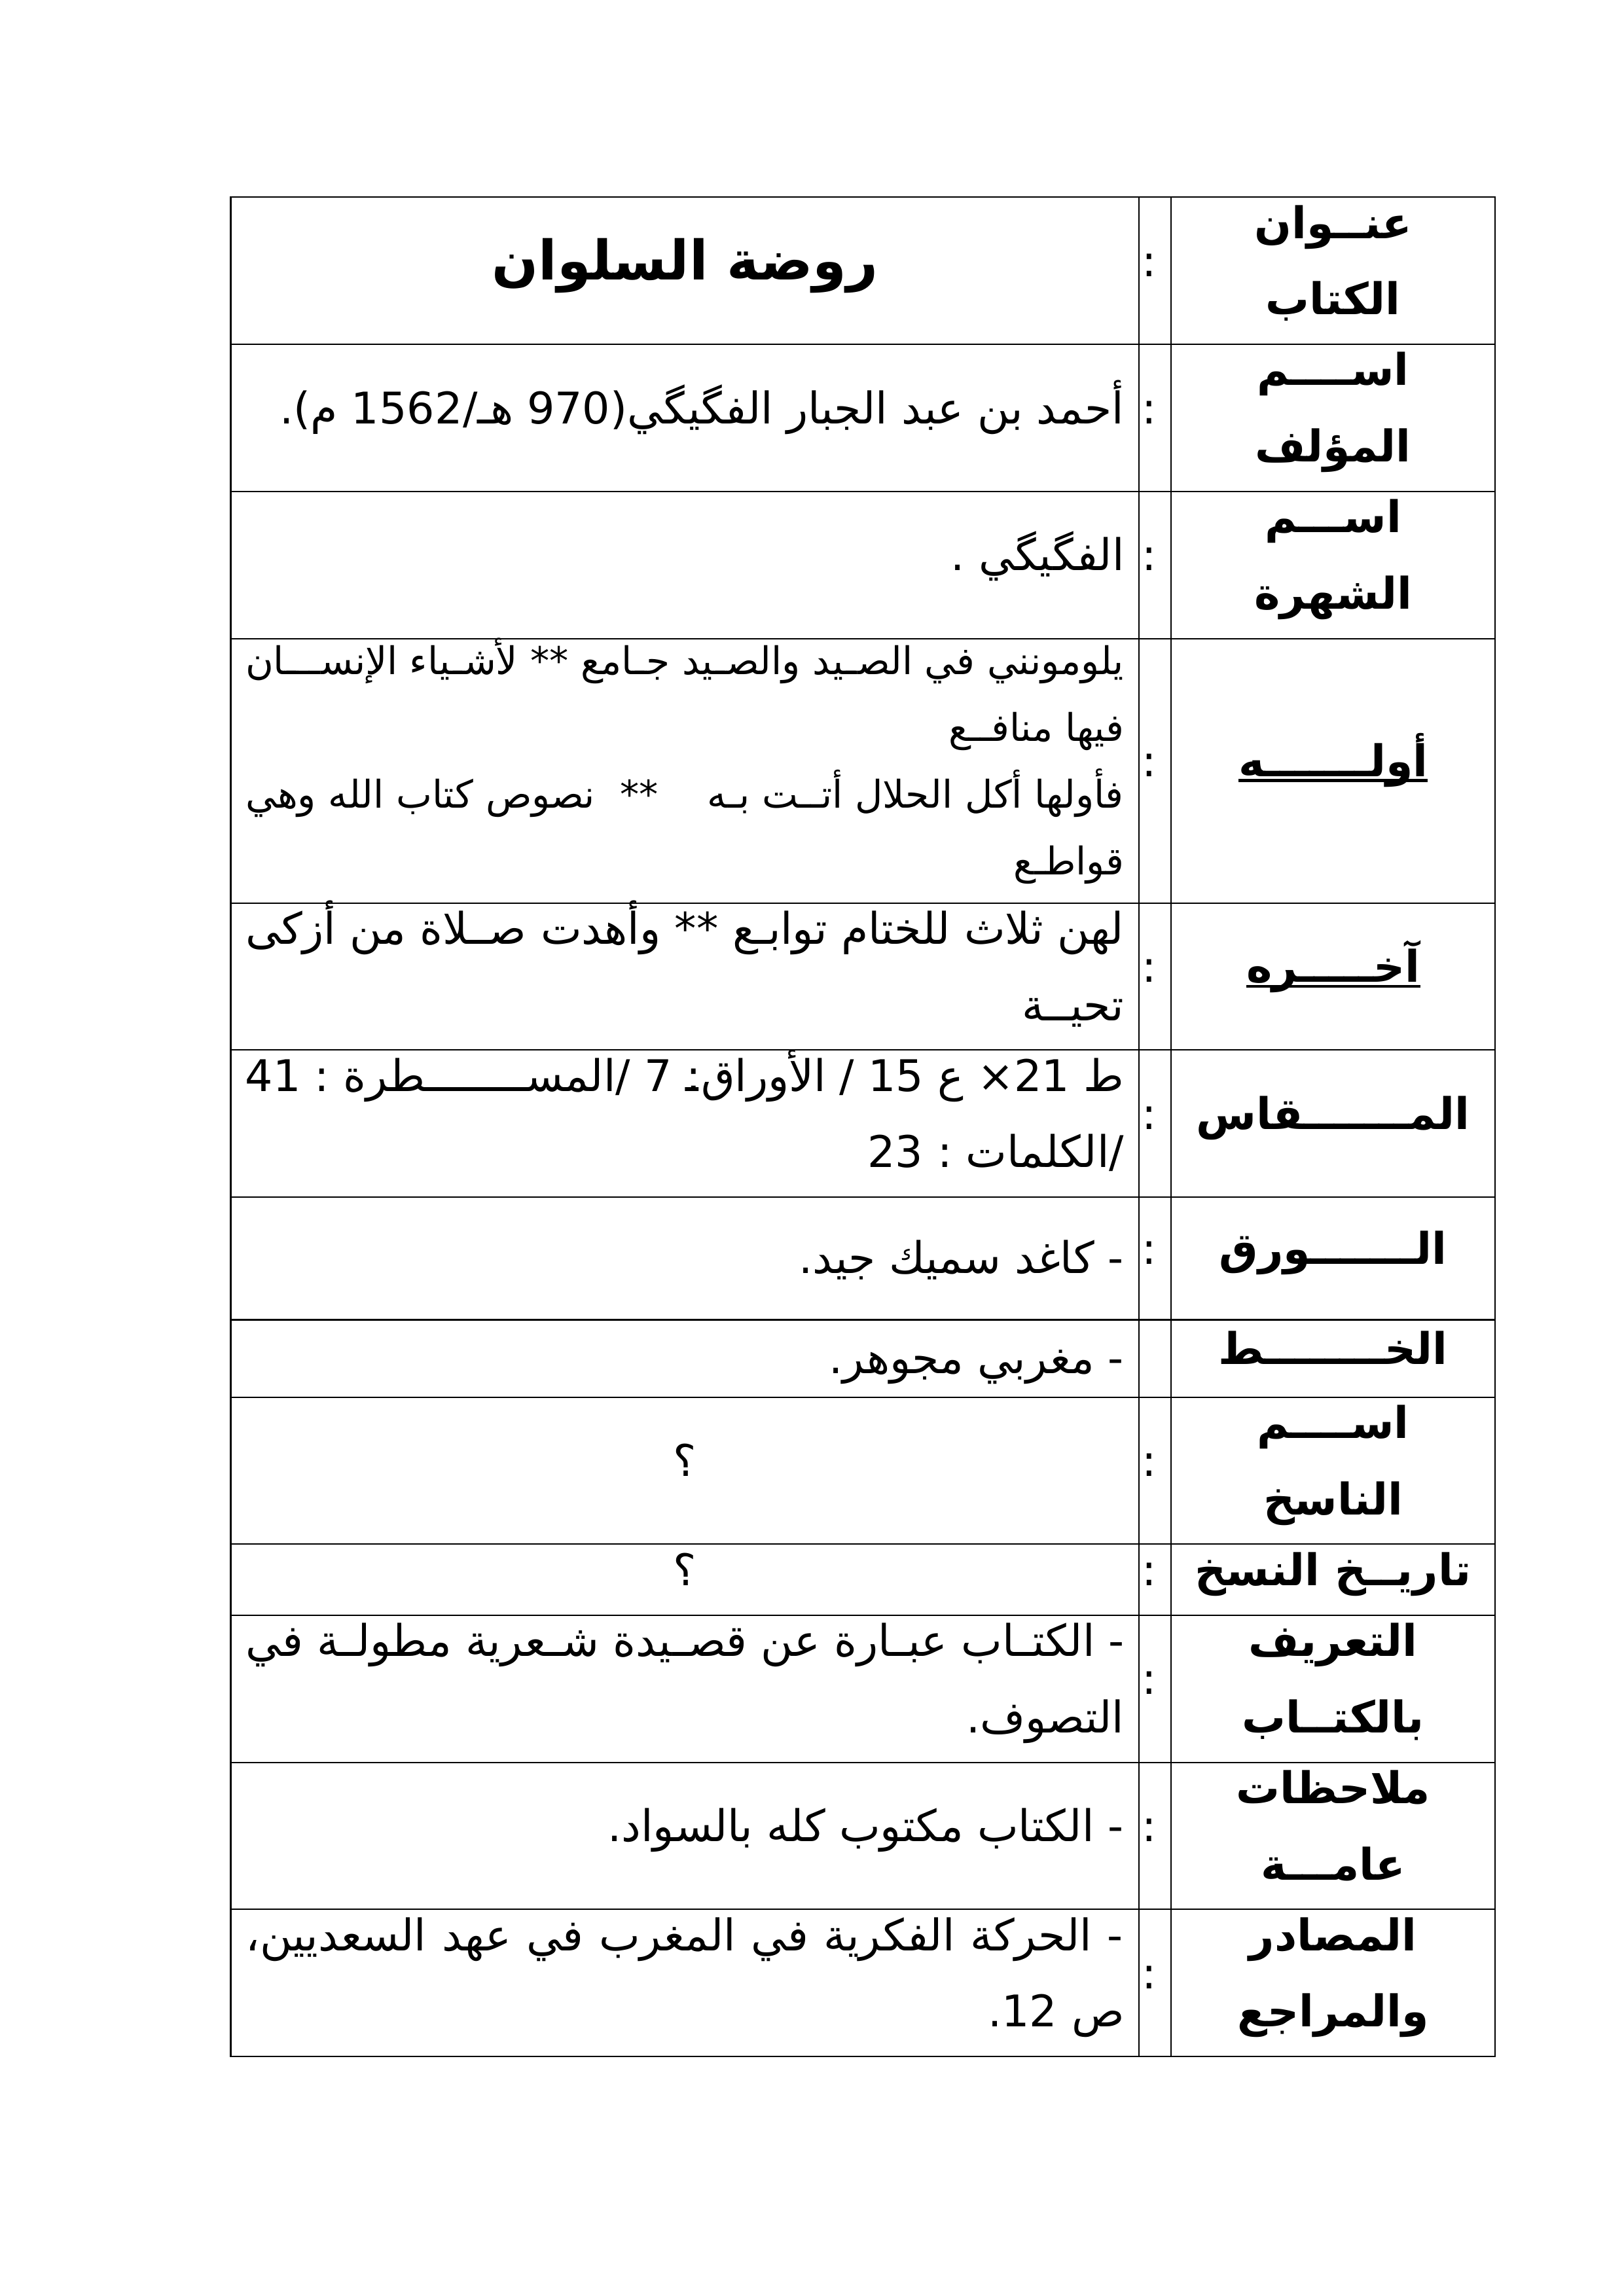 عنــوان
الكتاب
:
روضة السلوان
اســـــم
المؤلف
:
أحمد بن عبد الجبار الفگيگي(970 هـ/1562 م).
اســـم
الشهرة
:
الفگيگي .
أولـــــــه
:
يلومونني في الصـيد والصـيد جـامع ** لأشـياء الإنســـان
فيها منافــع
فأولها أكل الحلال أتــت بـه ** نصوص كتاب الله وهي
قواطـع
آخـــــره
:
لهن ثلاث للختام توابـع ** وأهدت صــلاة من أزكى
تحيــة
المـــــــقاس
:
ط 21× ع 15 / الأوراق: 7 /المســــــــطرة : 41
/الكلمات : 23
الـــــــورق
:
- كاغد سميك جيد.
الخــــــــط
- مغربي مجوهر.
اســـــم
الناسخ
:
؟
تاريــخ النسخ
:
؟
التعريف
بالكتــاب
:
- الكتـاب عبـارة عن قصـيدة شـعرية مطولـة في
التصوف.
ملاحظات
عامـــة
:
- الكتاب مكتوب كله بالسواد.
المصادر
والمراجع
:
- الحركة الفكرية في المغرب في عهد السعديين،
ص 12.